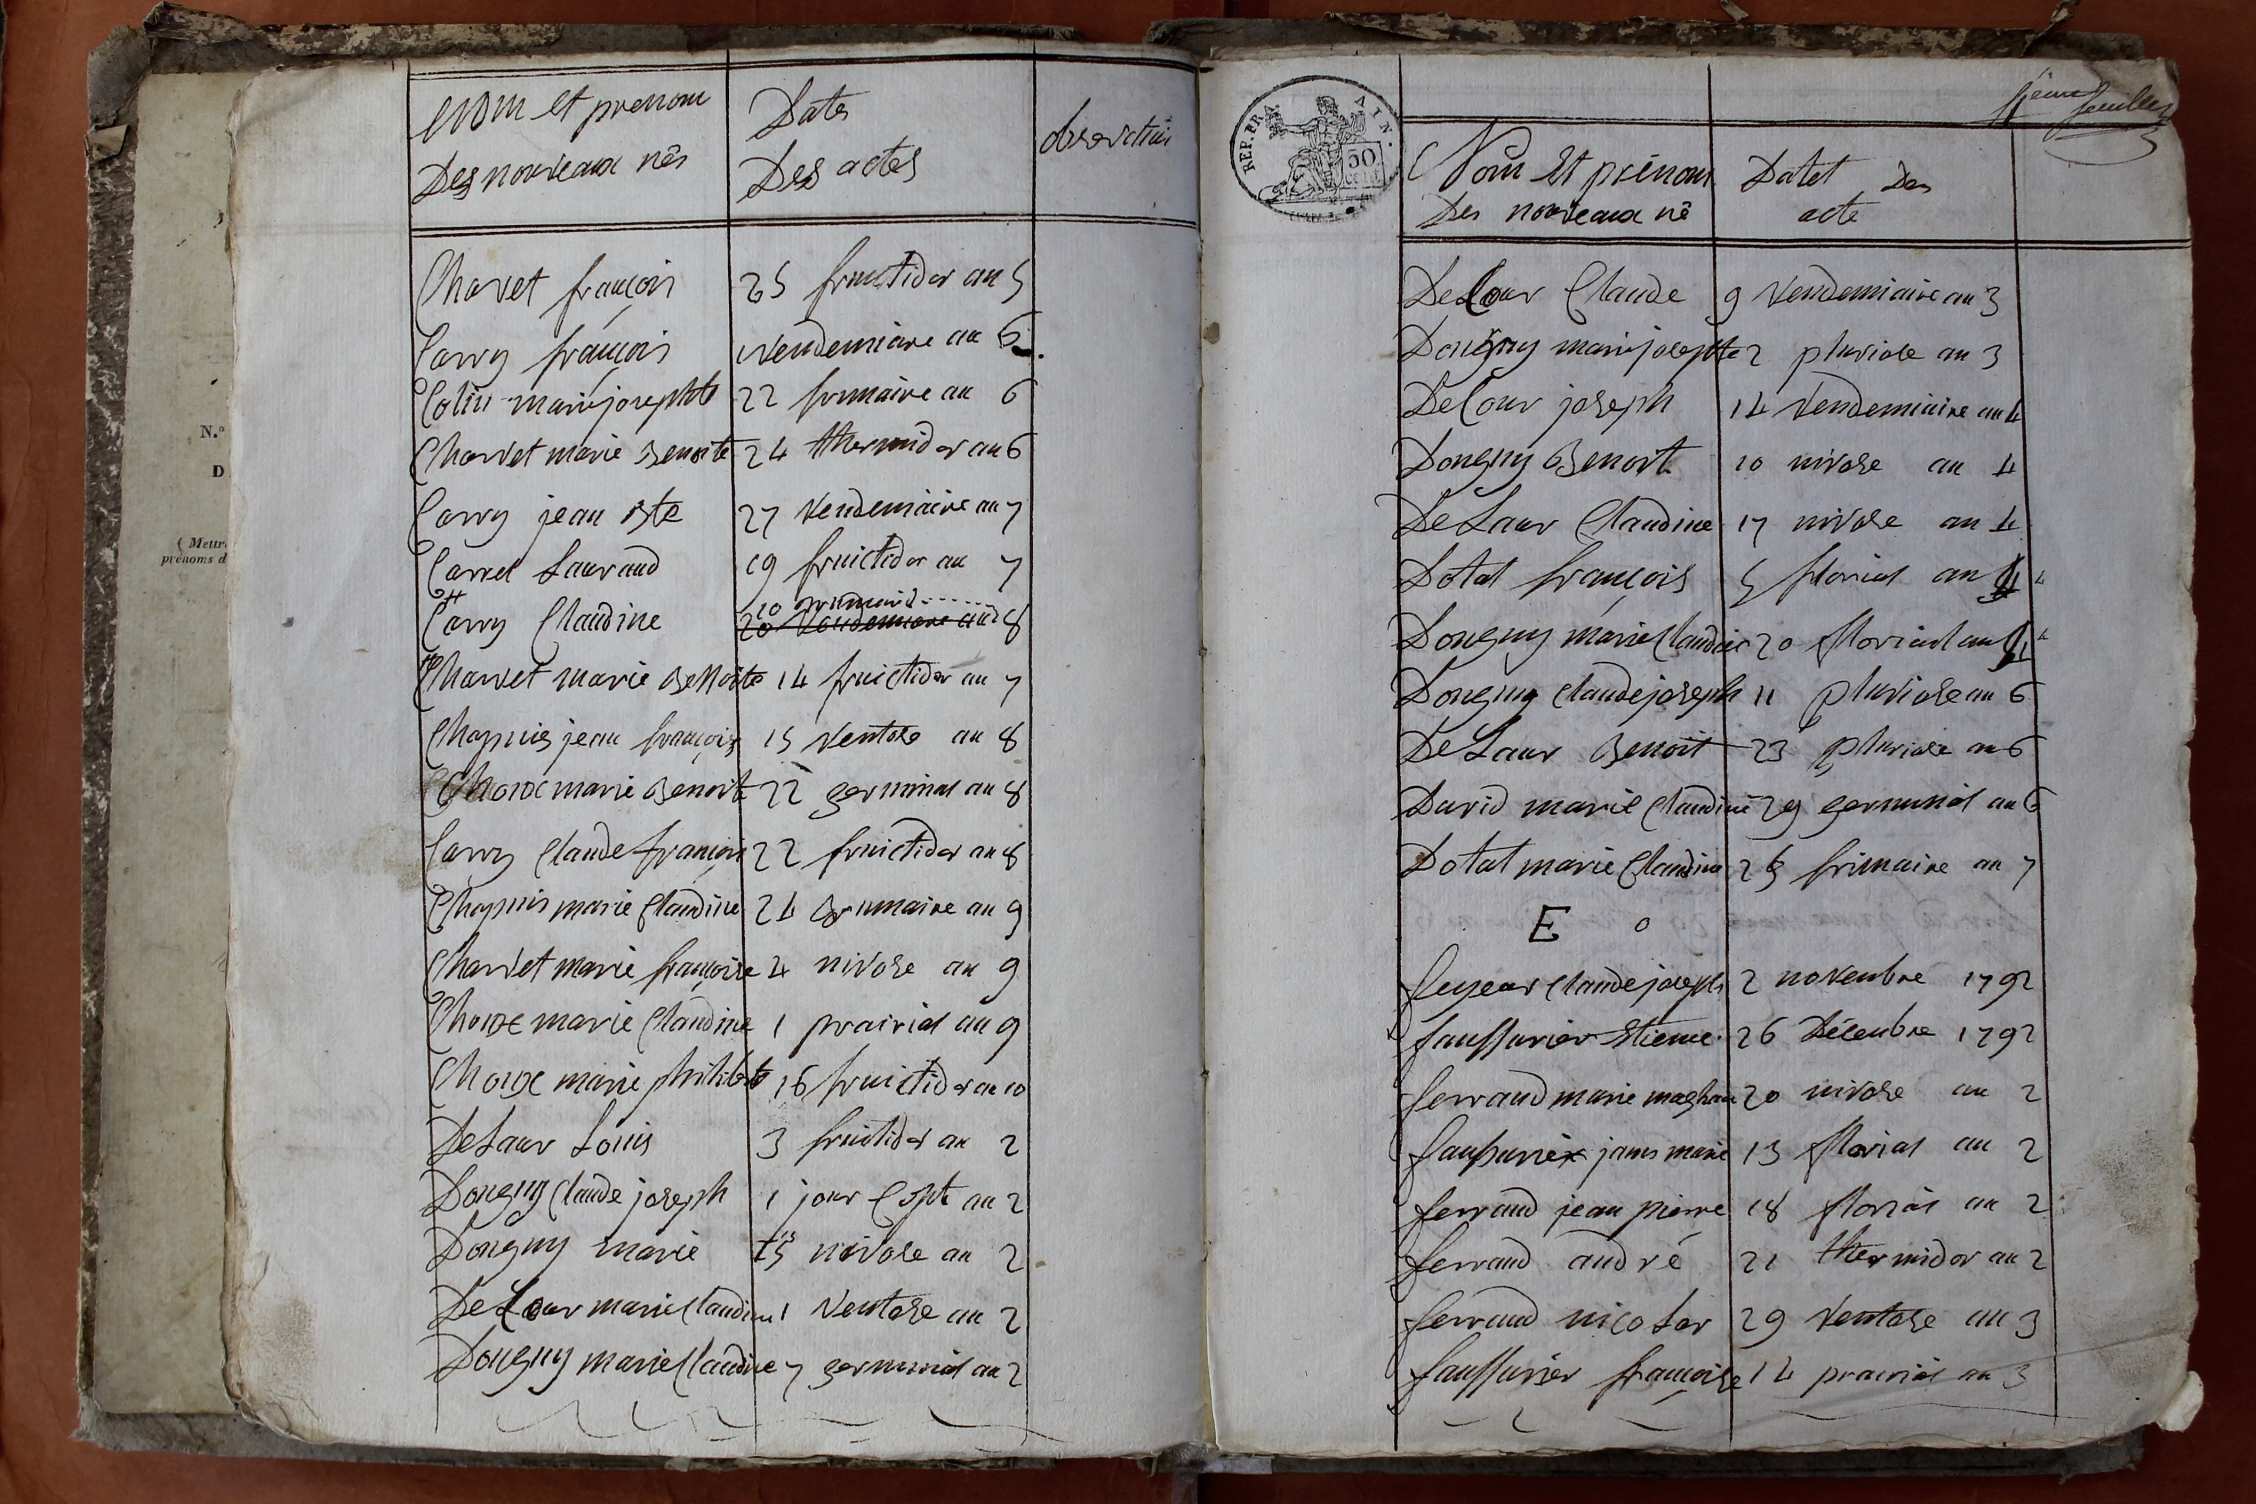 Nom et prenom
Des nouveaux nés
Dates
Des actes
observations
N.º
D
( Mettr
prénoms d
Charvet françois 25 fructidor an 5
Carry françois 1 Vendemiaire an 6
Colin marie josephte 22 frimaire an 6
Charvet marie Benoite 24 thermidor an 6
Carry jean Bte 27 Vendemiaire an 7
Carret Laurand 19 fruictidor an 7
10 brumaire
Carry Claudine 20 Vendemiaire an 8
Charvet marie Benoite 14 fruictidor an 7
Chapuis jean françois 15 Ventose an 8
marie Benoit 22 germinal an 8
Carry Claude françois 22 fruictidor an 8
Chapuis marie Claudine 24 Brumaire an 9
Charvet marie françoise 4 nivose an 9
marie Claudine 1 prairial an 9
marie philiberte 16 fruictidor an 10
DeLaur Louis 3 fruictidor an 2
Donguy Claude joseph 1 jour Cople an 2
Donguy marie 15 nivose an 2
DeLaur marie Claudine 1 Ventose an 2
Donguy marie Claudine 7 germinal an 2
REP. FRA. AIN.
50
CENT.
feuillet
Nom et prénom
Des nouveaux né
Datet Des
acte
DeLour Claude 9 Vendemiaire an 3
Donguy marie josephte 2 pluviose an 3
DeLour joseph 14 Vendemiaire an 4
Donguy Benoit 10 nivose an 4
DeLaur Claudine 17 nivose an 4
Dotal françois 5 florial an 4 4
Donguy marie Claudine 20 florial an 4
Donguy Claude joseph 11 pluviose an 6
DeLaur Benoit 23 pluviose an 6
David marie Claudine 29 germinal an 6
Dotal marie Claudine 25 frimaire an 7
E 0
feyeux Claude joseph 2 novembre 1792
faussurier Etienne 26 Décembre 1792
ferrand marie 20 nivose an 2
faussurier marie 13 florial an 2
ferrand jean pierre 18 florial an 2
ferrand andré 21 thermidor an 2
ferrand nicolas 29 Ventose an 3
faussurier françoise 14 prairial an 3